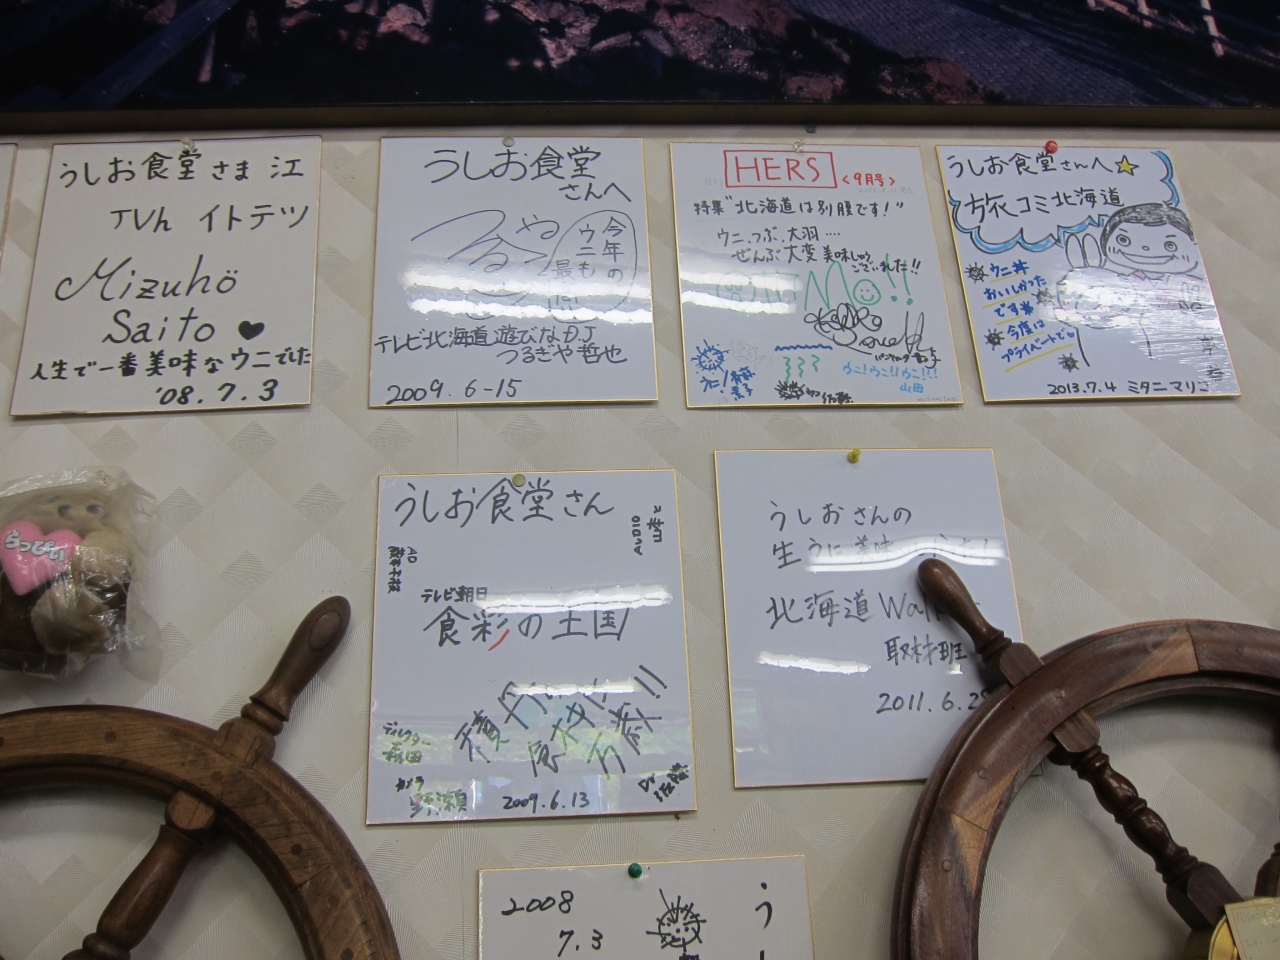 うしお食堂さま江
TVh イトテツ
Mizuho
Saito
人生で一番美味なウニでした
'08.7.3
うしお食堂
さんへ
今年の
ウニも
最
テレビ北海道 遊びなDJ
つるぎや哲也
2009.6-15
HERS
<9月号>
特集"北海道は別腹です!"
ウニ、つぶ、大羽....
ぜんぶ大変美味しゅう
ございました!!
ウニ!ウニ!!ウニ!!!
山田
うしお食堂さんへ☆
旅コミ北海道
ウニ丼
おいしかった
です
今度は
プライベートで
2013.7.4 ミタニマリコ
らっぴぃ
うしお食堂さん
AUDIO
AD
テレビ朝日
食彩の王国
積丹
食材に
万歳!!
ディレクター
カメラ
2009.6.13
うしおさんの
生うに美味
北海道Wal
取材班
2011.6.2
2008
7.3
う